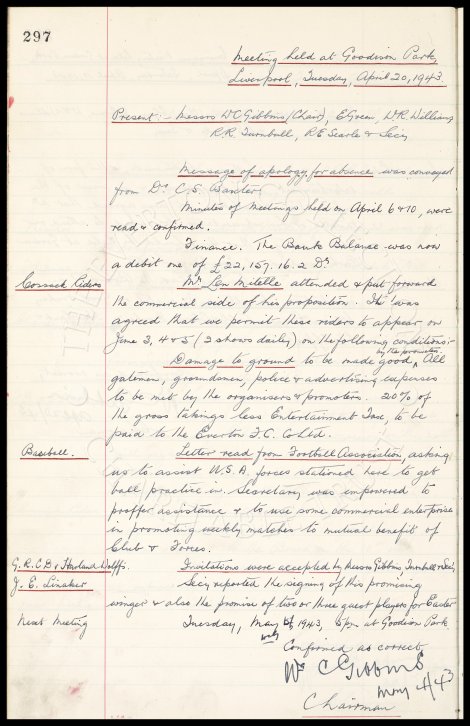 297
Meeting held at Goodison Park,
Liverpool, Tuesday, April 20, 1943.
Present :- Messrs W.C. Gibbins (Chair), E. Green, W.R. Williams,
R.R. Turnbull, R.E. Searle & Secy
Message of apology for absence was conveyed
from Dr. C.S. Baxter.
Minutes of meetings held on April 6 & 10, were
read & confirmed.
Finance. The Bank Balance was now
a debit one of £22,157.16.2 Dr
Cossack Riders Mr Len Mitelle attended & put forward
the commercial side of his proposition. It was
agreed that we permit these riders to appear on
June 3, 4 & 5 (2 shows daily) on the following conditions:-
Damage to ground to be made good, by the promoters. All
gatemen, groundsmen, police & advertising expenses
to be met by the organisers & promoters. 20% of
the gross takings less Entertainment Tax, to be
paid to the Everton F.C. Co Ltd.
Baseball. Letter read from Football Association, asking
us to assist U.S.A. forces stationed here to get
ball practice in. Secretary was empowered to
proffer assistance & to use some commercial enterprise
in promoting weekly matches to mutual benefit of
Club & Forces.
G.R.C.D. & Harland Wolffs. Invitations were accepted by Messrs Gibbins Turnbull & Secy
J.E. Linaker Secy reported the signing of this promising
winger & also the promise of two or three guest players for Easter
Next Meeting Tuesday, May 4, 1943, 5pm at Goodison Park
Confirmed as correct
Wm C Gibbins
May 4/43
Chairman